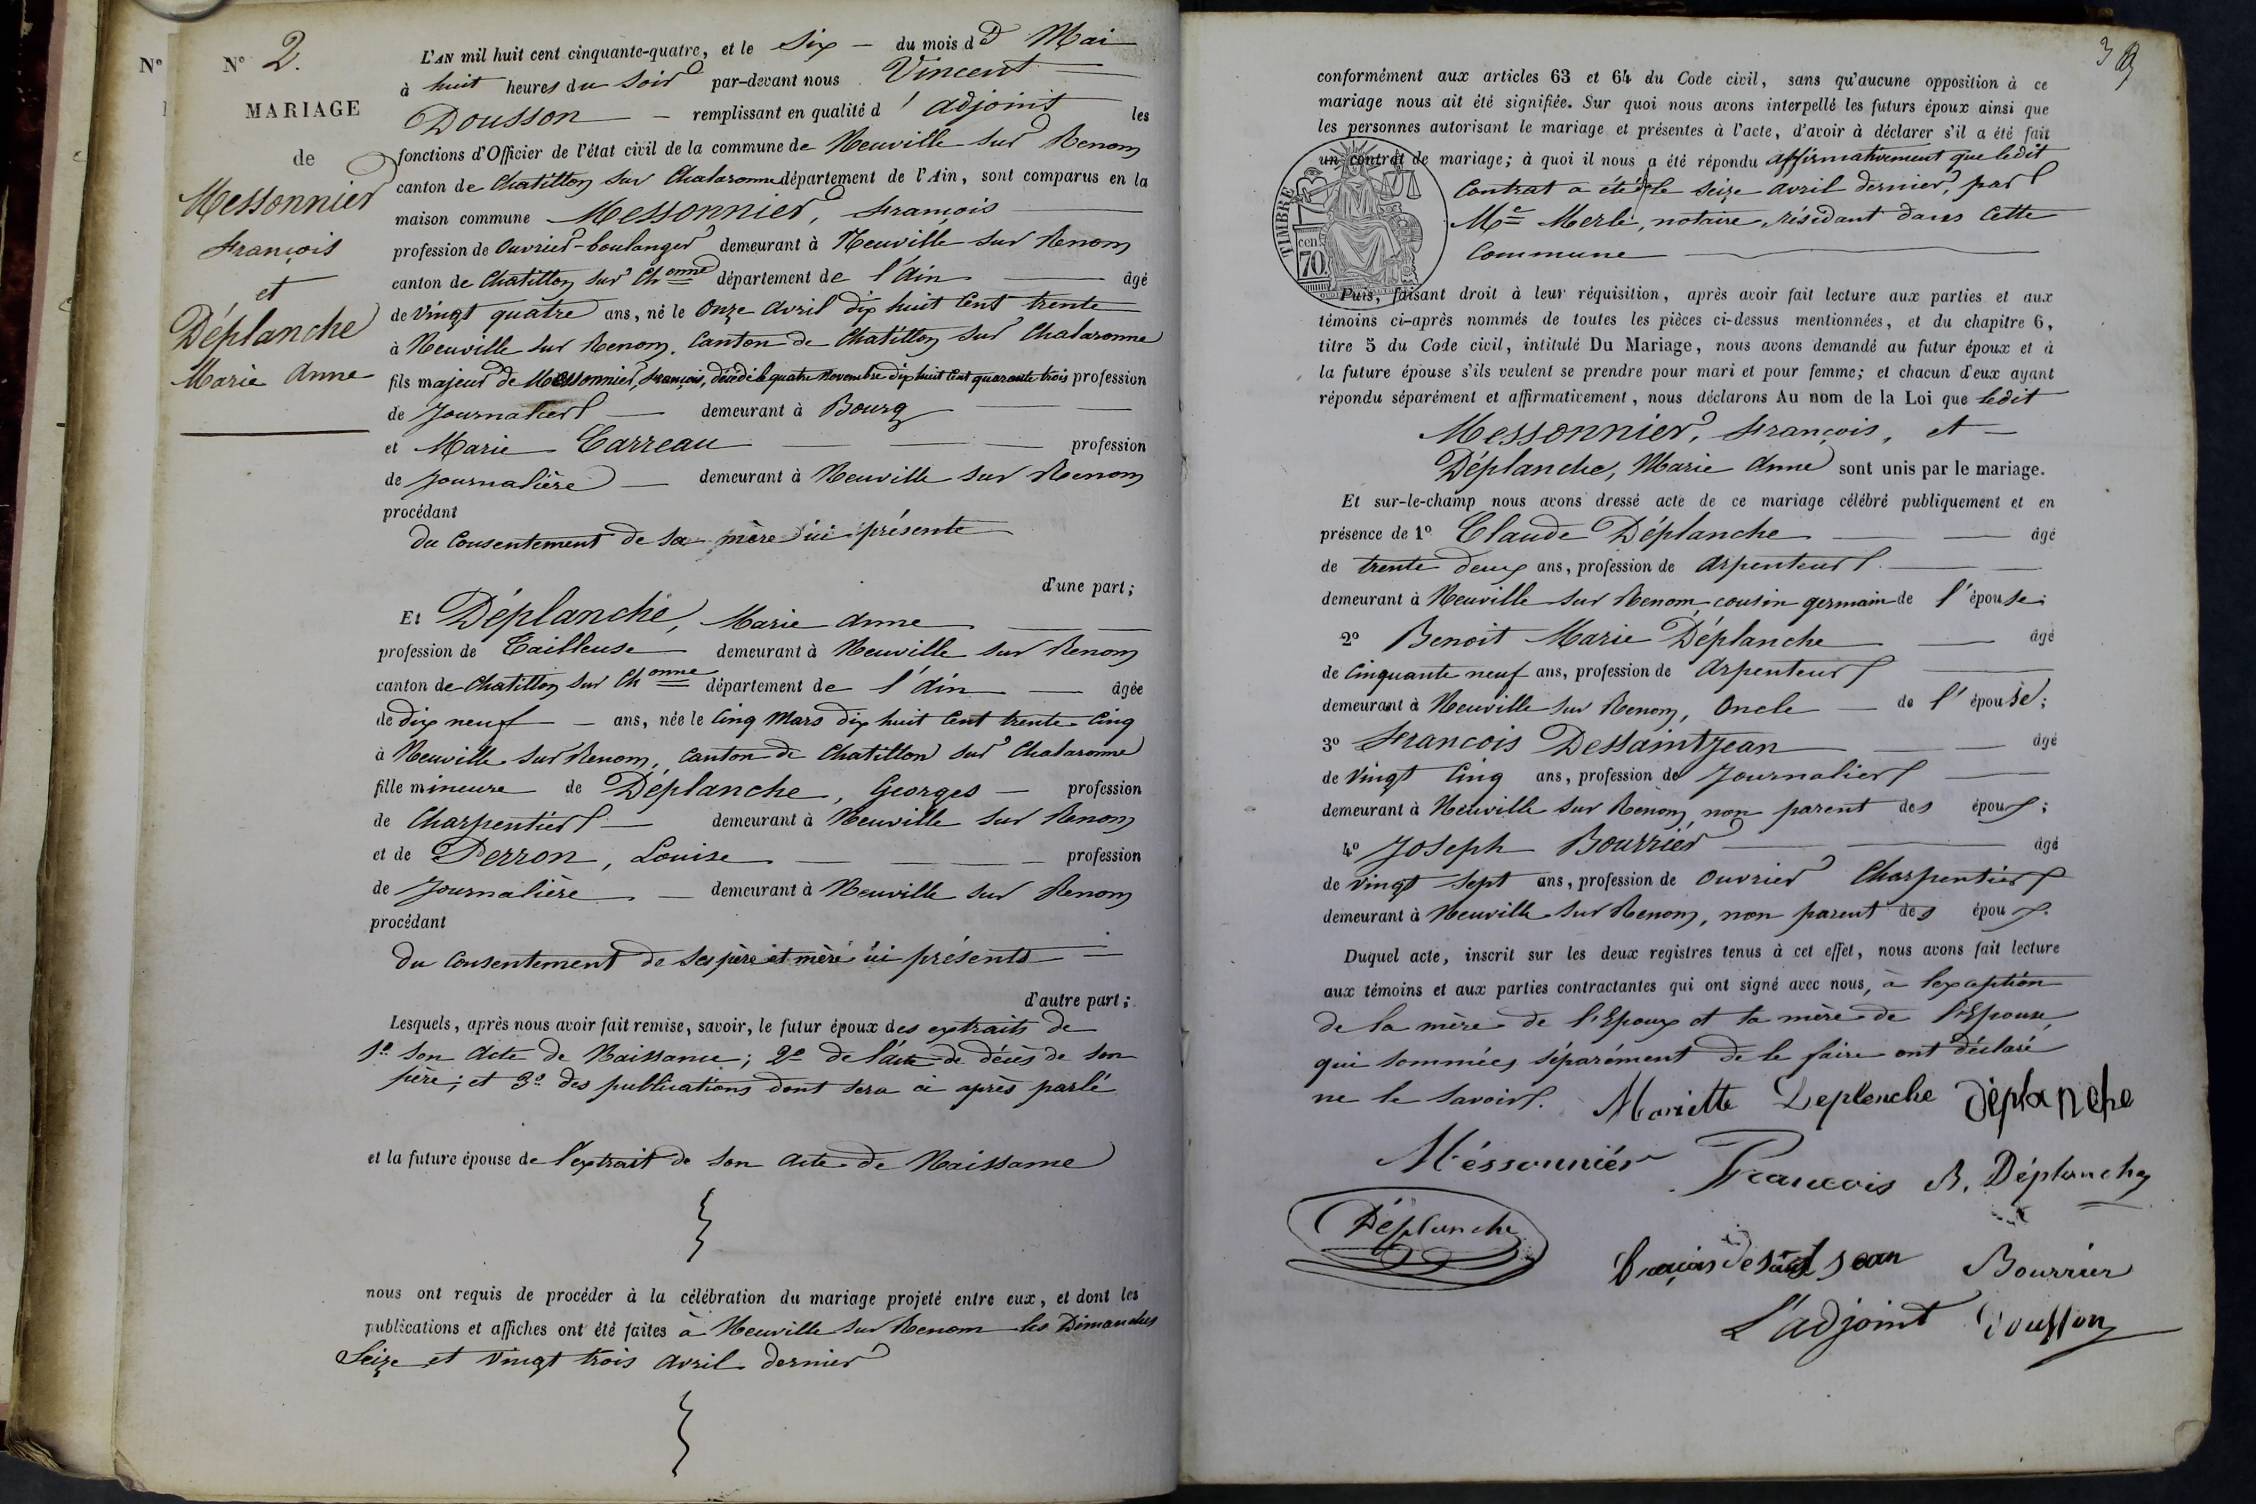 N°
N° 2.
MARIAGE
de
Messonnier
François
et
Déplanche
Marie Anne
L'AN mil huit cent cinquante-quatre, et le Six — du mois d e Mai
à huit heures du Soir par-devant nous Vincent
Dousson — remplissant en qualité d' adjoint les
fonctions d'Officier de l'état civil de la commune de Neuville sur Renom
canton de Chatillon sur Chalaronne département de l'Ain, sont comparus en la
maison commune Messonnier, François
profession de Ouvrier-boulanger demeurant à Neuville sur Renom
canton de Chatillon sur Ch onne département de l'Ain — âgé
de Vingt quatre ans, né le Onze Avril dix huit Cent trente
à Neuville sur Renom. Canton de Chatillon sur Chalaronne
fils majeur de Messonnier, François, décédé le quatre Novembre dix huit Cent quarante trois profession
de Journalier — demeurant à Bourg
et Marie Carreau — profession
de Journalière — demeurant à Neuville sur Renom
procédant
du Consentement de sa mère ici présente
d'une part;
Et Déplanche, Marie Anne
profession de Tailleuse demeurant à Neuville sur Renom
canton de Chatillon sur Ch onne département de l'Ain — âgée
de dix neuf — ans, née le Cinq Mars dix huit Cent trente Cinq
à Neuville sur Renom, Canton de Chatillon sur Chalaronne
fille mineure de Déplanche, Georges — profession
de Charpentier — demeurant à Neuville sur Renom
et de Perron, Louise — profession
de Journalière — demeurant à Neuville sur Renom
procédant
du Consentement de ses père et mère ici présents
d'autre part;
Lesquels, après nous avoir fait remise, savoir, le futur époux des extraits de
1° son Acte de Naissance; 2° de l'acte de décès de son
père; et 3° des publications dont sera ci après parlé
et la future épouse de l'extrait de son acte de Naissance
nous ont requis de procéder à la célébration du mariage projeté entre eux, et dont les
publications et affiches ont été faites à Neuville sur Renom les Dimanches
Seize et Vingt trois Avril dernier
3
conformément aux articles 63 et 64 du Code civil, sans qu'aucune opposition à ce
mariage nous ait été signifiée. Sur quoi nous avons interpellé les futurs époux ainsi que
les personnes autorisant le mariage et présentes à l'acte, d'avoir à déclarer s'il a été fait
un contrat de mariage; à quoi il nous a été répondu affirmativement que ledit
Contrat a été le seize Avril dernier, par
Me Merle, notaire, résidant dans Cette
Commune
TIMBRE
70 cen.
Puis, faisant droit à leur réquisition, après avoir fait lecture aux parties et aux
témoins ci-après nommés de toutes les pièces ci-dessus mentionnées, et du chapitre 6,
titre 5 du Code civil, intitulé Du Mariage, nous avons demandé au futur époux et à
la future épouse s'ils veulent se prendre pour mari et pour femme; et chacun d'eux ayant
répondu séparément et affirmativement, nous déclarons Au nom de la Loi que ledit
Messonnier, François, et —
Déplanche, Marie Anne sont unis par le mariage.
Et sur-le-champ nous avons dressé acte de ce mariage célébré publiquement et en
présence de 1° Claude Déplanche — âgé
de trente deux ans, profession de Arpenteur
demeurant à Neuville sur Renom, cousin germain de l'épouse;
2° Benoit Marie Déplanche — âgé
de Cinquante neuf ans, profession de Arpenteur
demeurant à Neuville sur Renom, Oncle — de l'épouse;
3° François Dessaintjean — âgé
de Vingt Cinq ans, profession de Journalier
demeurant à Neuville sur Renom, non parent des époux;
4° Joseph Bourrier — âgé
de vingt sept ans, profession de Ouvrier Charpentier
demeurant à Neuville sur Renom, non parent des époux.
Duquel acte, inscrit sur les deux registres tenus à cet effet, nous avons fait lecture
aux témoins et aux parties contractantes qui ont signé avec nous, à l'exception
de la mère de l'Epoux et la mère de l'Epouse,
qui sommées séparément de le faire ont déclaré
ne le savoir. Mariette Deplenche Déplanche
Méssonniér François B. Déplanche
Déplanche
françois desaint jean Bourrier
L'adjoint Dousson